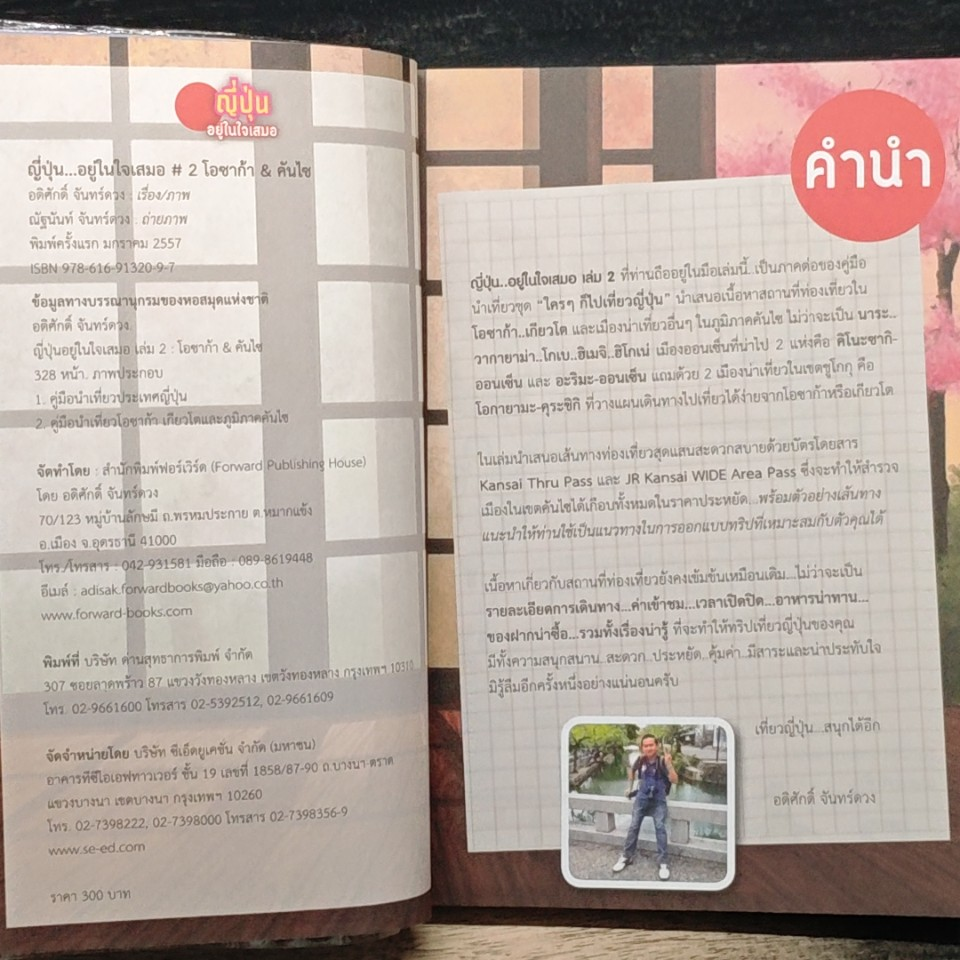 ญี่ปุ่น
อยู่ในใจเสมอ
ญี่ปุ่น...อยู่ในใจเสมอ # 2 โอซาก้า & คันไซ
อดิศักดิ์ จันทร์ดวง : เรื่อง/ภาพ
ณัฐนันท์ จันทร์ดวง : ถ่ายภาพ
พิมพ์ครั้งแรก มกราคม 2557
ISBN 978-616-91320-9-7
ข้อมูลทางบรรณานุกรมของหอสมุดแห่งชาติ
อดิศักดิ์ จันทร์ดวง.
ญี่ปุ่นอยู่ในใจเสมอ เล่ม 2 : โอซาก้า & คันไซ
328 หน้า. ภาพประกอบ
1. คู่มือนำเที่ยวประเทศญี่ปุ่น
2. คู่มือนำเที่ยวโอซาก้า เกียวโตและภูมิภาคคันไซ
จัดทำโดย : สำนักพิมพ์ฟอร์เวิร์ด (Forward Publishing House)
โดย อดิศักดิ์ จันทร์ดวง
70/123 หมู่บ้านลักษมี ถ.พรหมประกาย ต.หมากแข้ง
อ.เมือง จ.อุดรธานี 41000
โทร./โทรสาร : 042-931581 มือถือ : 089-8619448
อีเมล์ : adisak.forwardbooks@yahoo.co.th
www.forward-books.com
พิมพ์ที่ บริษัท ด่านสุทธาการพิมพ์ จำกัด
307 ซอยลาดพร้าว 87 แขวงวังทองหลาง เขตวังทองหลาง กรุงเทพฯ 10310
โทร. 02-9661600 โทรสาร 02-5392512, 02-9661609
จัดจำหน่ายโดย บริษัท ซีเอ็ดยูเคชั่น จำกัด (มหาชน)
อาคารทีซีไอเอฟทาวเวอร์ ชั้น 19 เลขที่ 1858/87-90 ถ.บางนา-ตราด
แขวงบางนา เขตบางนา กรุงเทพฯ 10260
โทร. 02-7398222, 02-7398000 โทรสาร 02-7398356-9
www.se-ed.com
ราคา 300 บาท
คำนำ
ญี่ปุ่น..อยู่ในใจเสมอ เล่ม 2 ที่ท่านถืออยู่ในมือเล่มนี้..เป็นภาคต่อของคู่มือ
นำเที่ยวชุด "ใครๆ ก็ไปเที่ยวญี่ปุ่น" นำเสนอเนื้อหาสถานที่ท่องเที่ยวใน
โอซาก้า..เกียวโต และเมืองน่าเที่ยวอื่นๆ ในภูมิภาคคันไซ ไม่ว่าจะเป็น นาระ..
วากายาม่า..โกเบ..ฮิเมจิ..ฮิโกเน่ เมืองออนเซ็นที่น่าไป 2 แห่งคือ คิโนะซากิ-
ออนเซ็น และ อะริมะ-ออนเซ็น แถมด้วย 2 เมืองน่าเที่ยวในเขตชูโกกุ คือ
โอกายามะ-คุระชิกิ ที่วางแผนเดินทางไปเที่ยวได้ง่ายจากโอซาก้าหรือเกียวโต
ในเล่มนำเสนอเส้นทางท่องเที่ยวสุดแสนสะดวกสบายด้วยบัตรโดยสาร
Kansai Thru Pass และ JR Kansai WIDE Area Pass ซึ่งจะทำให้สำรวจ
เมืองในเขตคันไซได้เกือบทั้งหมดในราคาประหยัด...พร้อมตัวอย่างเส้นทาง
แนะนำให้ท่านใช้เป็นแนวทางในการออกแบบทริปที่เหมาะสมกับตัวคุณได้
เนื้อหาเกี่ยวกับสถานที่ท่องเที่ยวยังคงเข้มข้นเหมือนเดิม...ไม่ว่าจะเป็น
รายละเอียดการเดินทาง...ค่าเข้าชม...เวลาเปิดปิด...อาหารน่าทาน...
ของฝากน่าซื้อ...รวมทั้งเรื่องน่ารู้ ที่จะทำให้ทริปเที่ยวญี่ปุ่นของคุณ
มีทั้งความสนุกสนาน..สะดวก..ประหยัด..คุ้มค่า..มีสาระและน่าประทับใจ
มิรู้ลืมอีกครั้งหนึ่งอย่างแน่นอนครับ
เที่ยวญี่ปุ่น...สนุกได้อีก
อดิศักดิ์ จันทร์ดวง